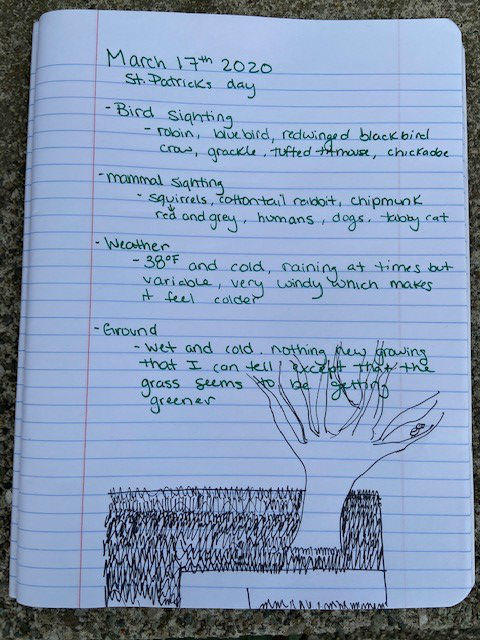 March 17th 2020
St. Patricks day
- Bird sighting
- robin, bluebird, redwinged blackbird
crow, grackle, tufted titmouse, chickadee
- mammal sighting
- squirrels, cottontail rabbit, chipmunk
red and grey, humans, dogs, tabby cat
- Weather
- 38°F and cold, raining at times but
variable, very windy which makes
it feel colder
- Ground
- wet and cold. nothing new growing
that I can tell except that the
grass seems to be getting
greener